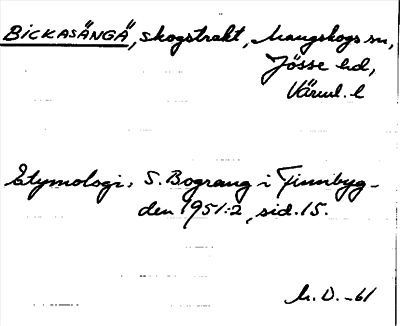 BICKASÄNGÄ, skogstrakt, Mangskogs sn,
Jösse hd,
Värml. l
Etymologi, S. Bograng i Finnbyg-
den 1951:2, sid. 15.
M. D. -61